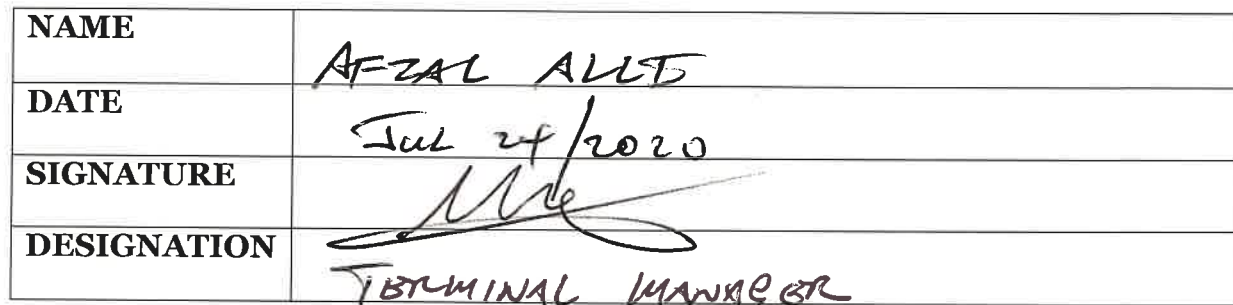 NAME AFZAL
DATE Jul 24/2020
SIGNATURE
DESIGNATION TERMINAL MANAGER